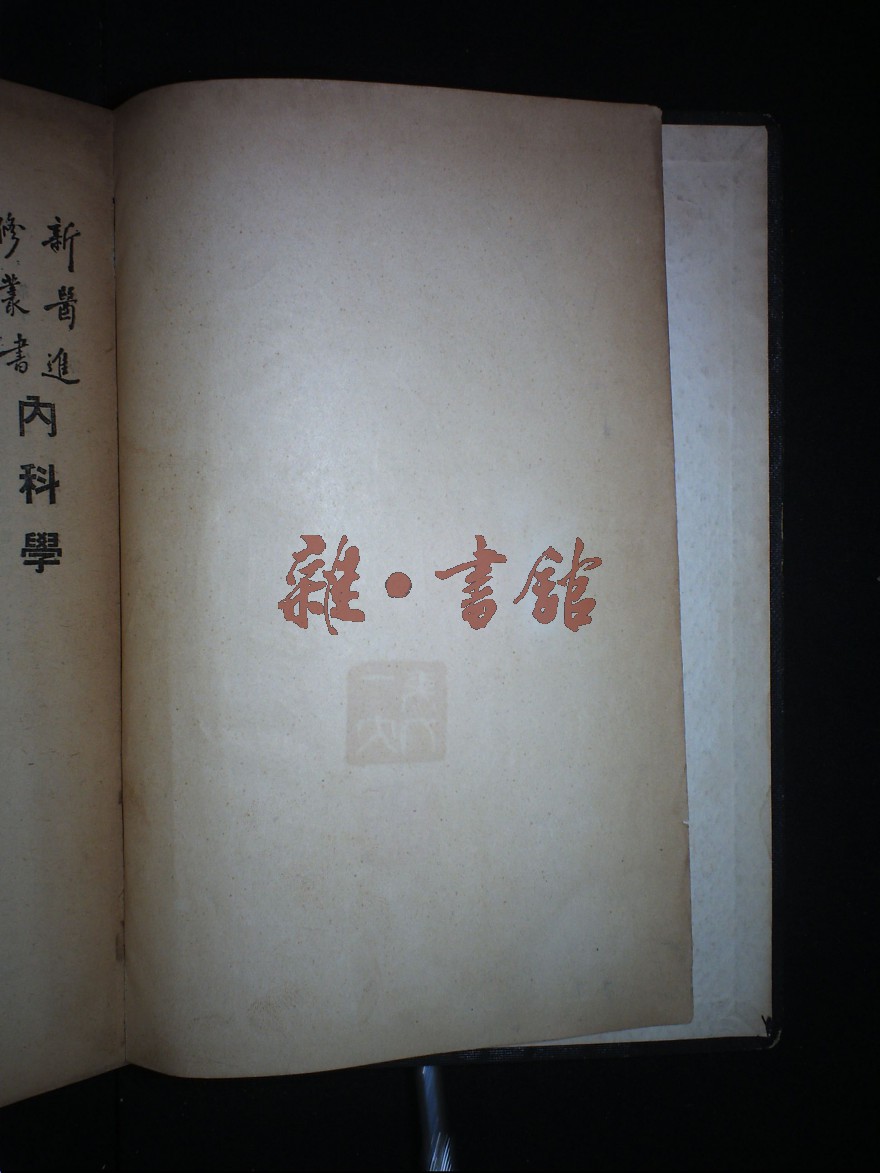 新醫進
修叢書
內科學
雜·書館